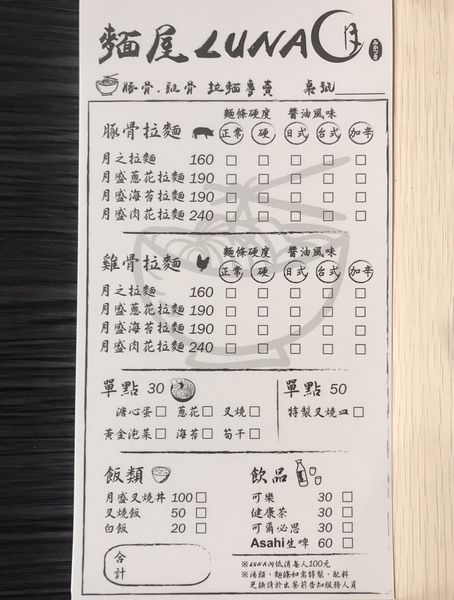 麵屋LUNA 月
豚骨.雞骨 拉麵專賣 桌號
麵條硬度 醬油風味
豚骨拉麵 正常 硬 日式 台式 加辛
月之拉麵 160 □ □ □ □ □
月盛蔥花拉麵 190 □ □ □ □ □
月盛海苔拉麵 190 □ □ □ □ □
月盛肉花拉麵 240 □ □ □ □ □
麵條硬度 醬油風味
雞骨拉麵 正常 硬 日式 台式 加辛
月之拉麵 160 □ □ □ □ □
月盛蔥花拉麵 190 □ □ □ □ □
月盛海苔拉麵 190 □ □ □ □ □
月盛肉花拉麵 240 □ □ □ □ □
單點 30
溏心蛋□ 蔥花□ 叉燒□
黃金泡菜□ 海苔□ 筍干□
單點 50
特製叉燒皿□
飯類
月盛叉燒丼 100□
叉燒飯 50 □
白飯 20 □
合計
飲品
可樂 30 □
健康茶 30 □
可爾必思 30 □
Asahi生啤 60 □
※LUNA內低消每人100元
※湯類、麵條如需特製、配料
更換請於出餐前告知服務人員